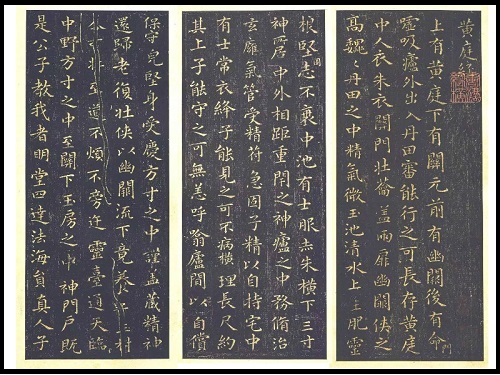 黃庭經
上有黃庭下有關元前有幽闕後有命門
噓吸廬外出入丹田審能行之可長存黃庭
中人衣朱衣關門壯籥蓋兩扉幽闕俠之
高魏魏丹田之中精氣微玉池清水上生肥靈
根堅志不衰中池有士服赤朱橫下三寸
神居中外相距重閉之神廬之中務脩治
玄廱氣管受精符急固子精以自持宅中
有士常衣絳子能見之可不病橫理長尺約
其上子能守之可無恙呼噏廬間以自償
保守完堅身受慶方寸之中謹蓋藏精神
還歸老復壯俠以幽闕流下竟養
至道不煩不旁迕靈臺通天臨
中野方寸之中至關下玉房之中神門戶既
是公子教我者明堂四達法海員真人子